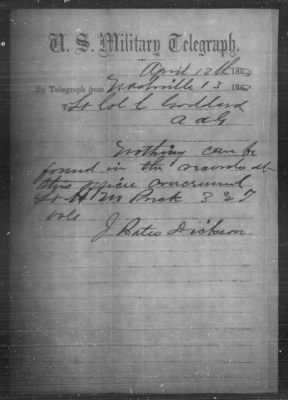 U. S. Military Telegraph.
April 13th 186
By Telegraph from Nashville 13 186
To Lt Col C Goddard
A A G
Nothing can be
found in the records at
this office concerning
Lt H M 3 & T
vols
J Bates Dickson